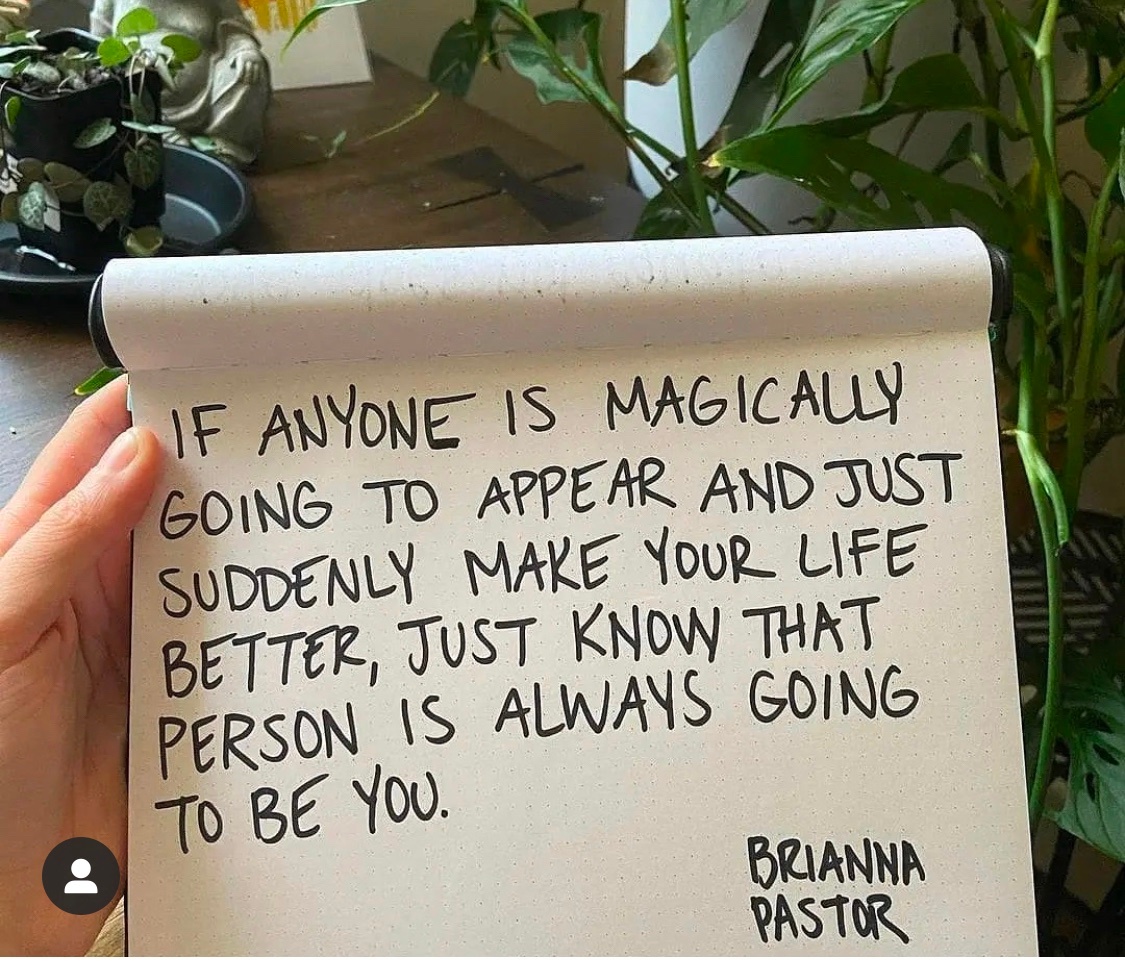 IF ANYONE IS MAGICALLY
GOING TO APPEAR AND JUST
SUDDENLY MAKE YOUR LIFE
BETTER, JUST KNOW THAT
PERSON IS ALWAYS GOING
TO BE YOU.
BRIANNA
PASTOR